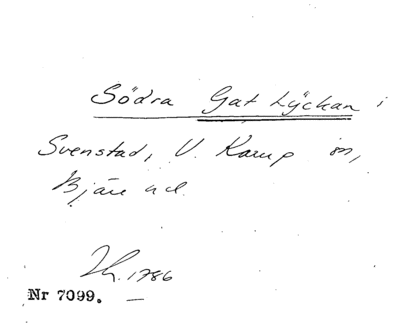 Södra Gat Lyckan i
Svenstad, V. Karup sn,
Bjäre hd.
Lh. 1786
Nr 7099.